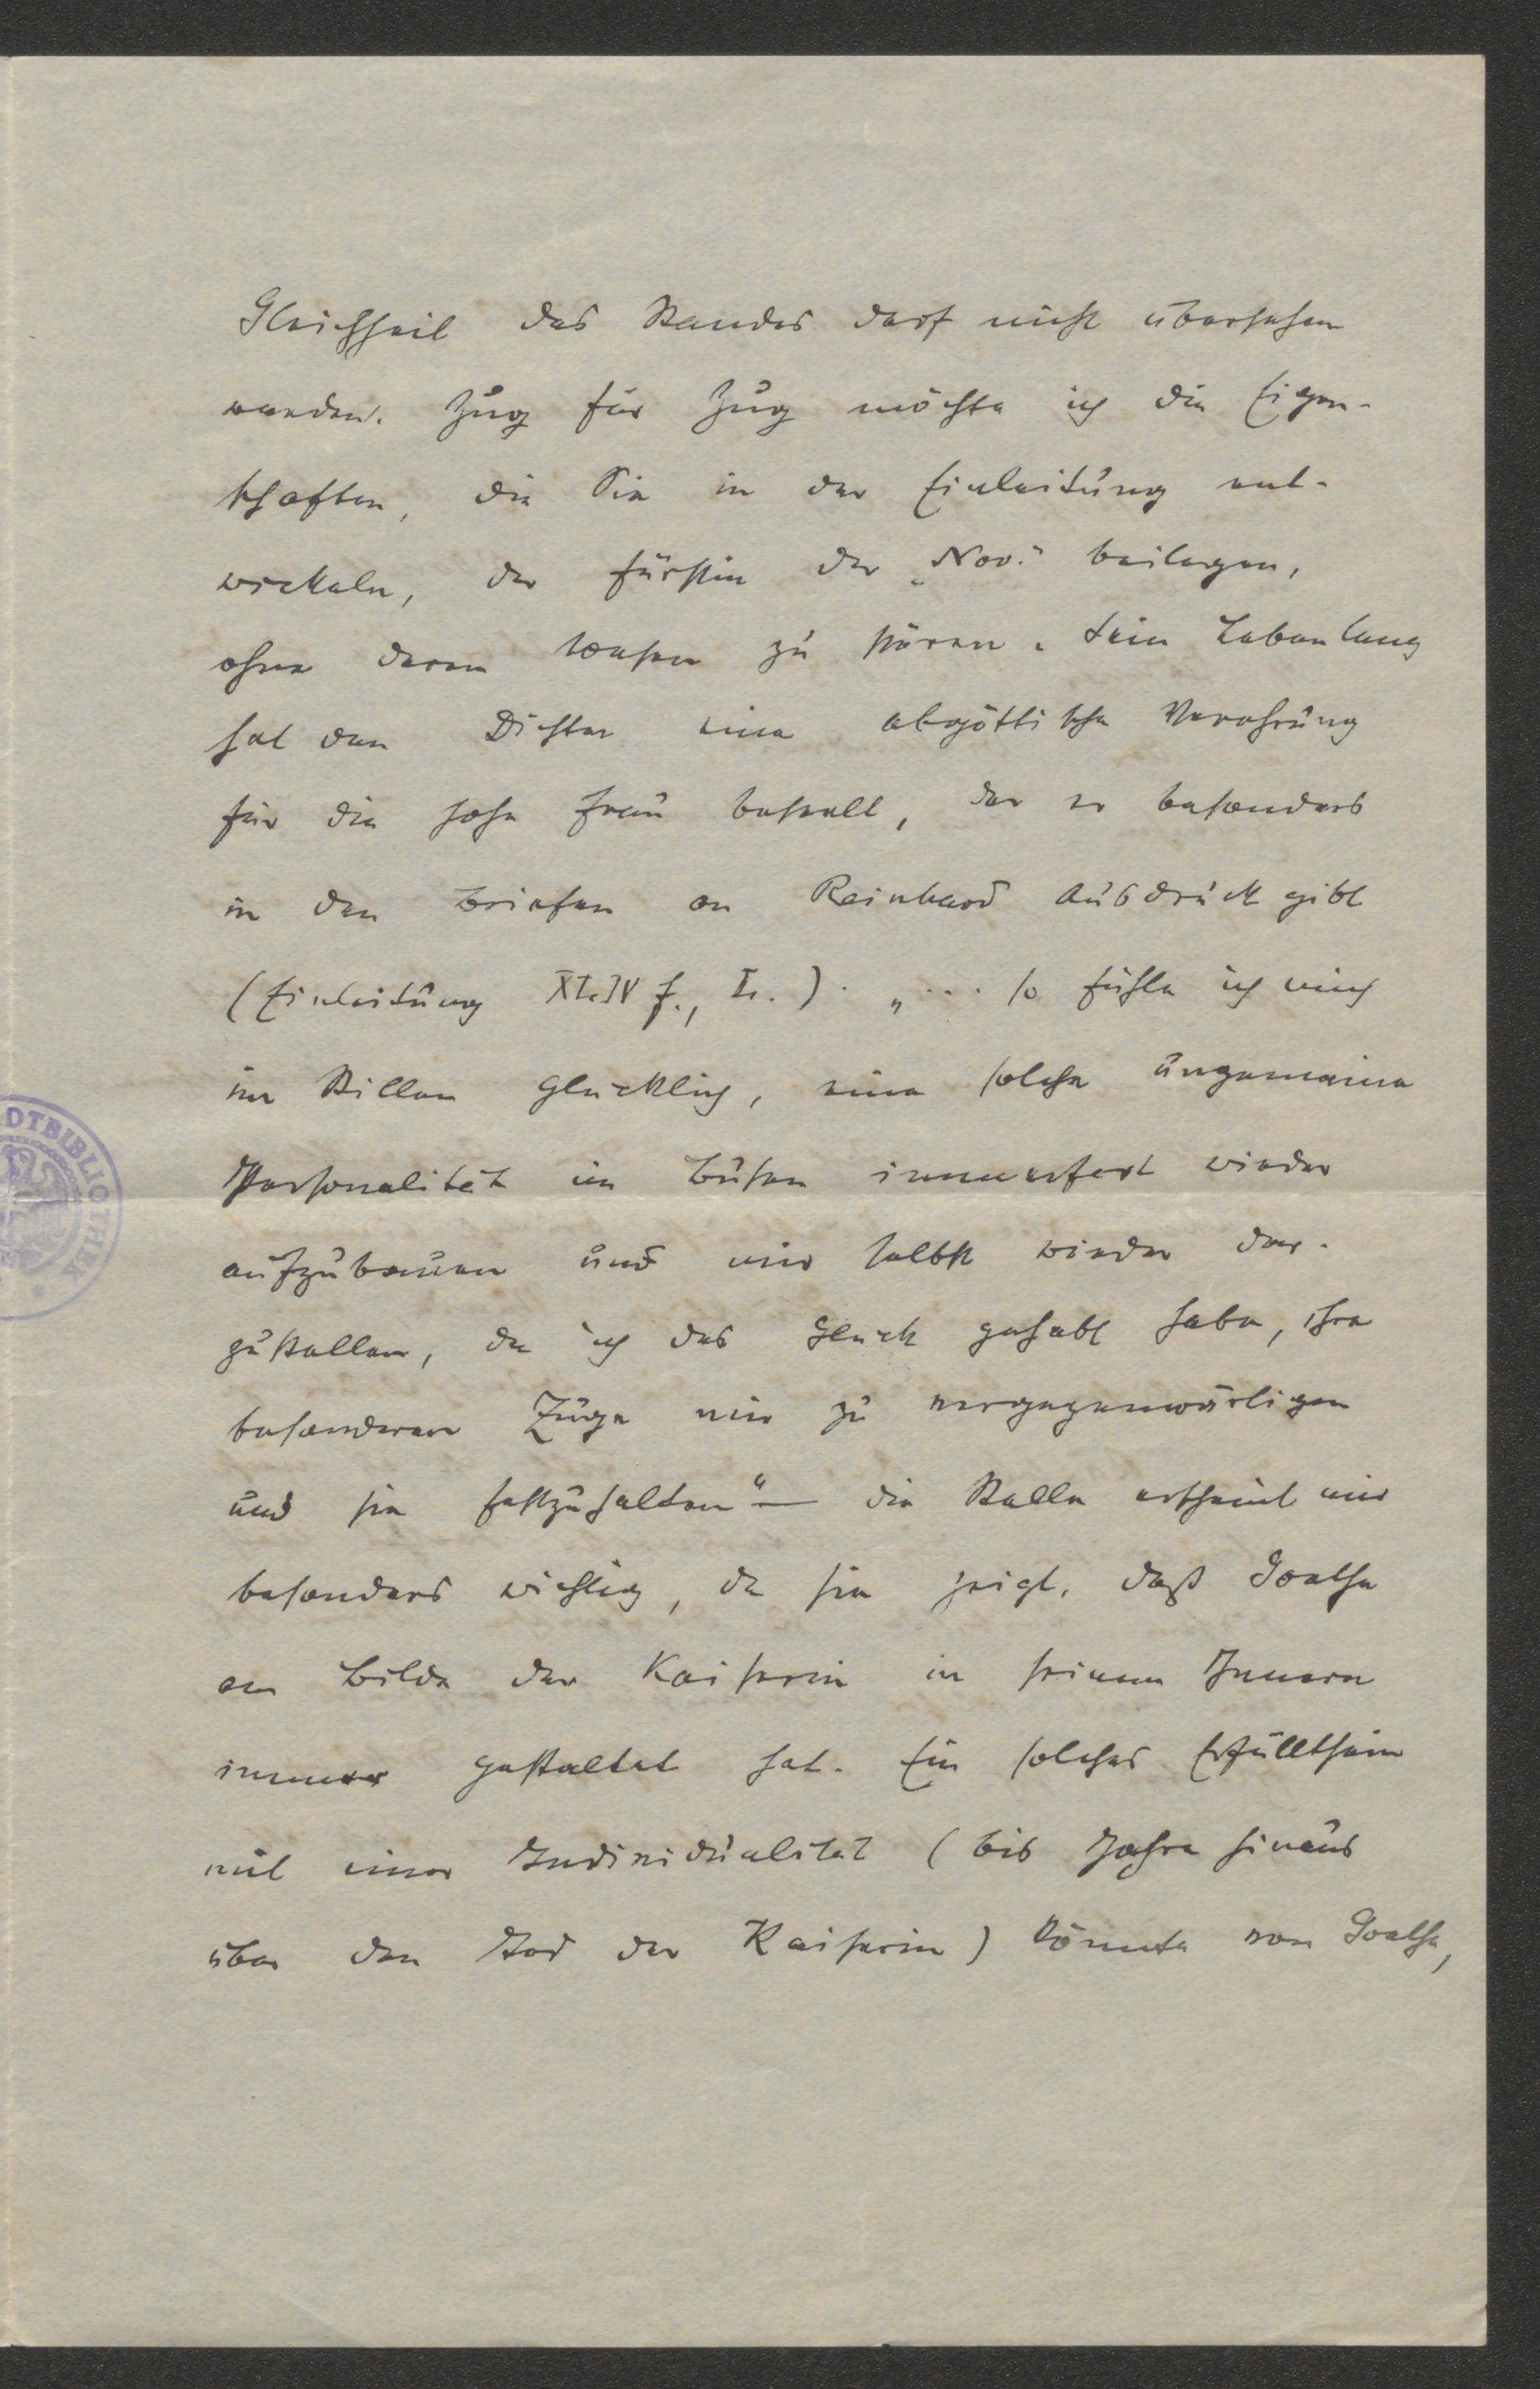 Gleichheit des Standes darf nicht übersehen
werden. Zug für Zug möchte ich die Eigen-
schaften, die Sie in der Einleitung ent-
wickeln, der Fürstin der „Nov." beilegen,
ohne deren Wesen zu stören. Sein Leben lang
hat den Dichter eine abgöttische Verehrung
für die hohe Frau beseelt, der er besonders
in den Briefen an Reinhard Ausdruck gibt
(Einleitung XLIV f., L.). „... so fühle ich mich
im Stillen glücklich, eine solche ungemeine
Personalität im Busen immerfort wieder
aufzubauen und mir selbst wieder dar-
zustellen, da ich das Glück gehabt habe, ihre
besonderen Züge mir zu vergegenwärtigen
und sie festzuhalten" — die Stelle erscheint mir
besonders wichtig, da sie zeigt, daß Goethe
am Bilde der Kaiserin in seinem Innern
immer gestaltet hat. Ein solches Erfülltsein
mit einer Individualität (bis Jahre hinaus
über den Tod der Kaiserin) könnte von Goethe,
DTBIBLIOTHEK